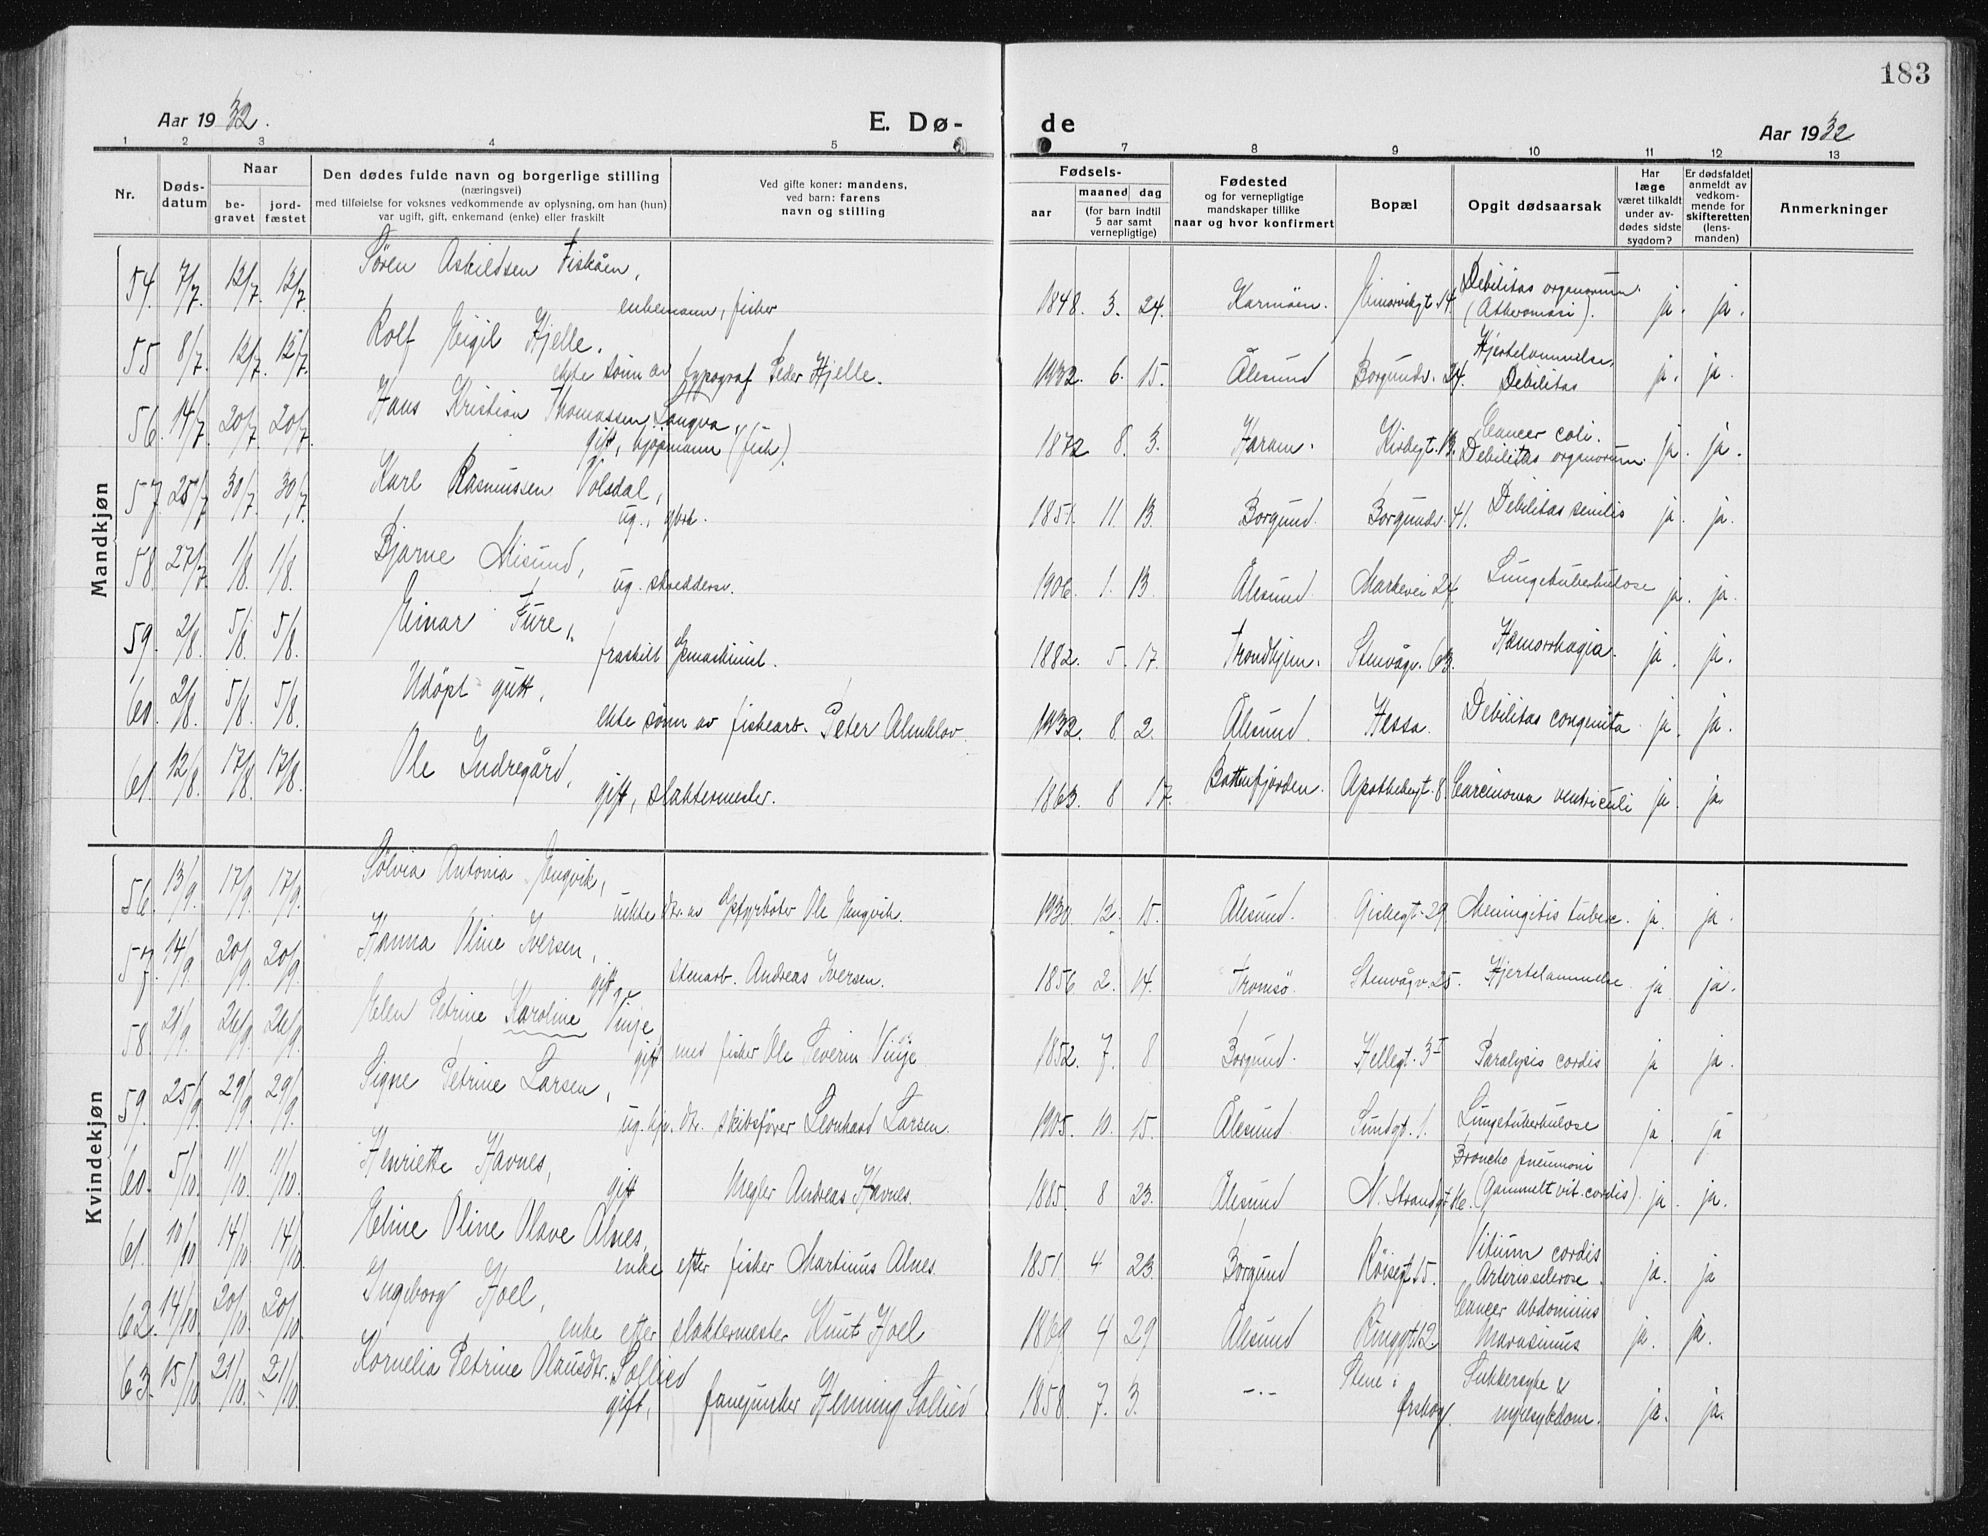 183
Aar 1932.
E. Dø-
de
Aar 1932
1 2 3 4 5 7 8 9 10 11 12 13
Nr.
Døds-
datum
Naar
be-
gravet
jord-
fæstet
Den dødes fulde navn og borgerlige stilling
(næringsvei)
med tilføielse for voksnes vedkommende av oplysning, om han (hun)
var ugift, gift, enkemand (enke) eller fraskilt
Ved gifte koner: mandens,
ved barn: farens
navn og stilling
Fødsels-
aar
maaned dag
(for barn indtil
5 aar samt
vernepligtige)
Fødested
og for vernepligtige
mandskaper tillike
naar og hvor konfirmert
Bopæl
Opgit dødsaarsak
Har
læge
været tilkaldt
under av-
dødes sidste
sygdom?
Er dødsfaldet
anmeldt av
vedkom-
mende for
skifteretten
(lens-
manden)
Anmerkninger
Mandkjøn
54. 7/7. 12/7. 12/7. Søren Askildsen Fiskåen,
enkemann, fisker
1848. 3. 24. Karmöen. 14. Debilitas organorum. (Atheromasi). ja. ja.
55 8/7. 12/7. 12/7. Rolf Eigil Hjelle.
ekte sønn av typograf Peder Hjelle.
1932. 6. 15. Ålesund Borgundv. 24. Hjertelammelse. Debilitas ja. ja.
56. 14/7. 20/7. 20/7. Hans Kristian Thomassen Longva,
gift, (fisk).
1872 8. 3. Haram. Kirkegt. 13. Cancer coli. Debilitas organorum. ja. ja.
57 25/7 30/7 30/7. Karl Rasmussen Volsdal,
ug., gbrk.
1851. 11. 13. Borgund. Borgundv. 41. Debilitas senilis ja. ja.
58. 27/7. 1/8. 1/8. Bjarne Misund,
ug. skreddersv.
1906. 1. 13. Ålesund Markevei 24. Lungetuberkulose ja. ja.
59. 2/8. 5/8. 5/8. Einar Fure,
fraskilt
1882. 5. 17. Trondhjem. Stenvågv. 63. Hæmorrhagia. ja. ja.
60. 2/8. 5/8. 5/8. Udöpt gutt,
ekte sønn av fiskearb. Peter Almklov.
1932. 8 2. Ålesund Hessa. Debilitas congenita. ja. ja.
61. 12/8. 17/8. 17/8. Ole Indregård,
gift, slaktermester.
1863. 8 17. Battenfjorden. Apothekergt. 8. Carcinoma ventriculi ja. ja.
Kvindekjøn
56. 13/9. 17/9. 17/9. Sølvia Antonia Engvik,
uekte dtr. av fyrböter Ole Engvik.
1930 12. 15. Ålesund. Giskegt. 29 Meningitis tuberc. ja. ja.
57. 14/9. 20/9. 20/9. Hanna Oline Iversen,
gift stenarb. Andreas Iversen.
1856. 2. 14. Tromsö. Stenvågv. 25. Hjertelammelse ja. ja.
58. 21/9. 26/9. 26/9. Elen Petrine Karoline Vinje
gift med fisker Ole Severin Vinje
1852. 7. 8 Borgund. Hellegt. 3 I Paralysis cordis ja ja.
59. 25/9. 29/9. 29/9. Signe Petrine Larsen,
ug. hjv. dtr. skibsfører Leonhard Larsen.
1905. 10. 15. Ålesund. Sundgt. 1. Lungetuberkulose ja. ja
60. 5/10. 11/10. 11/10. Henriette Havnes,
gift Megler Andreas Havnes.
1885. 8 23. Ålesund N. Strandgt. 16. Broncho pneumoni (Gammelt vit. cordis). ja. ja.
61. 10/10 14/10. 14/10. Eline Oline Olave Alnes,
enke efter fisker Martinus Alnes.
1851. 4 23. Borgund Röisegt. 15. Vitium cordis Arteriosclerose. ja. ja
62. 14/10. 20/10. 20/10. Ingeborg Hoel,
enke efter slaktermester Knut Hoel
1869 4 29 Ålesund Ringgt. 12. Cancer abdominis Marasmus ja. ja.
63. 15/10. 21/10. 21/10. Kornelia Petrine Olausdtr. Sollied
gift, fanejunker Henning Sollied
1858. 7. 3. -"- Stene i Ørskog. Sukkersyke & nyresykdom. ja. ja.